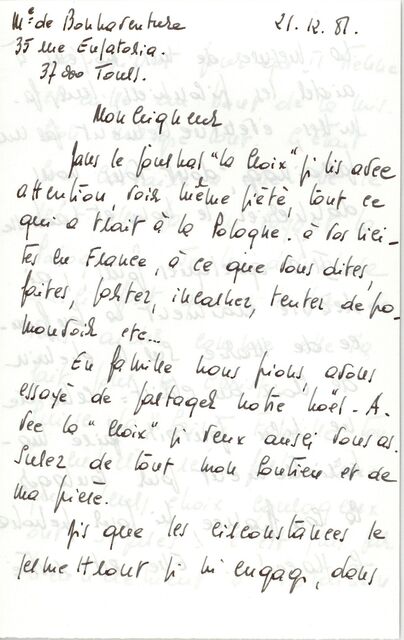 Me de Bonhaventure 21.12.81.
35 rue Eupatoria.
37000 Tours.
Monseigneur
Dans le journal "la Croix" j'lis avec
attention, voir même piété, tout ce
qui a trait à la Pologne. à vos visi-
tes en France, à ce que vous dites,
faites, portez, incarnez, tentez de pro-
mouvoir etc...
En famille nous prions, avons
essayé de partager notre noël. A-
vec la "Croix" je veux aussi vous as-
surer de tout mon soutien et de
ma piété.
Dès que les circonstances le
permettront je m'engage, dans